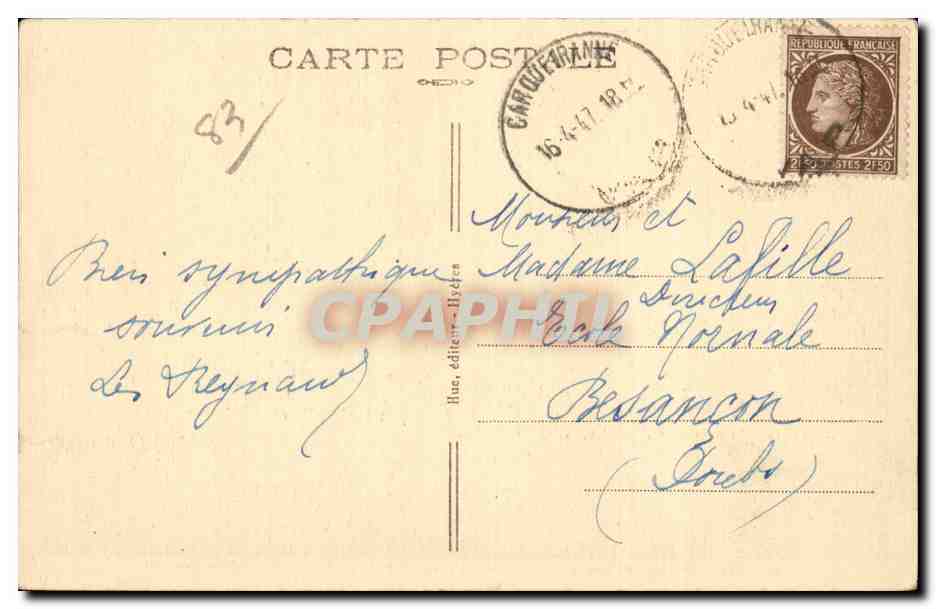 CARTE POSTALE
83
CARQUEIRANNE
16-4-47 18
CARQUEIRANNE
RÉPUBLIQUE FRANÇAISE
2F50 POSTES 2F50
Bien sympathique
souvenir
Les Reynaud
Hue, éditeur - Hyères
Monsieur et
Madame Lafille
Directeur
Ecole Normale
Besançon
(Doubs)
CPAPHIL